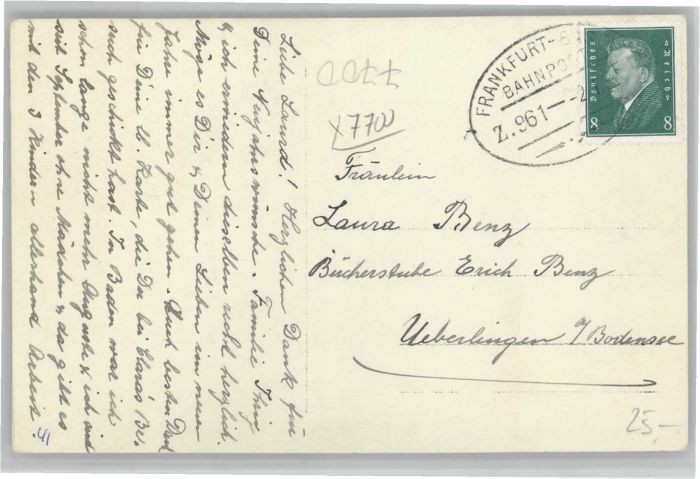 Liebe Laura! Herzlichen Dank für
Deine Neujahrswünsche. Familie
& ich erwidern dieselben recht herzlich.
Möge es Dir & Deinen Lieben im neuen
Jahre immer gut gehen. Auch besten Dank
für Deine lb. Karte, die Du bei Claras Be,
such geschickt hast. In Baden war ich
schon lange nicht mehr. Auguste & ich sind
seit September ohne Mädchen & da gibt es
mit den 3 Kindern allerhand Arbeit.
FRANKFURT-B
BAHNPOS
Z.961
Deutsches Reich
8 8
7700
x7700
Fräulein
Laura Benz
Bücherstube Erich Benz
Ueberlingen a/Bodensee
25,-